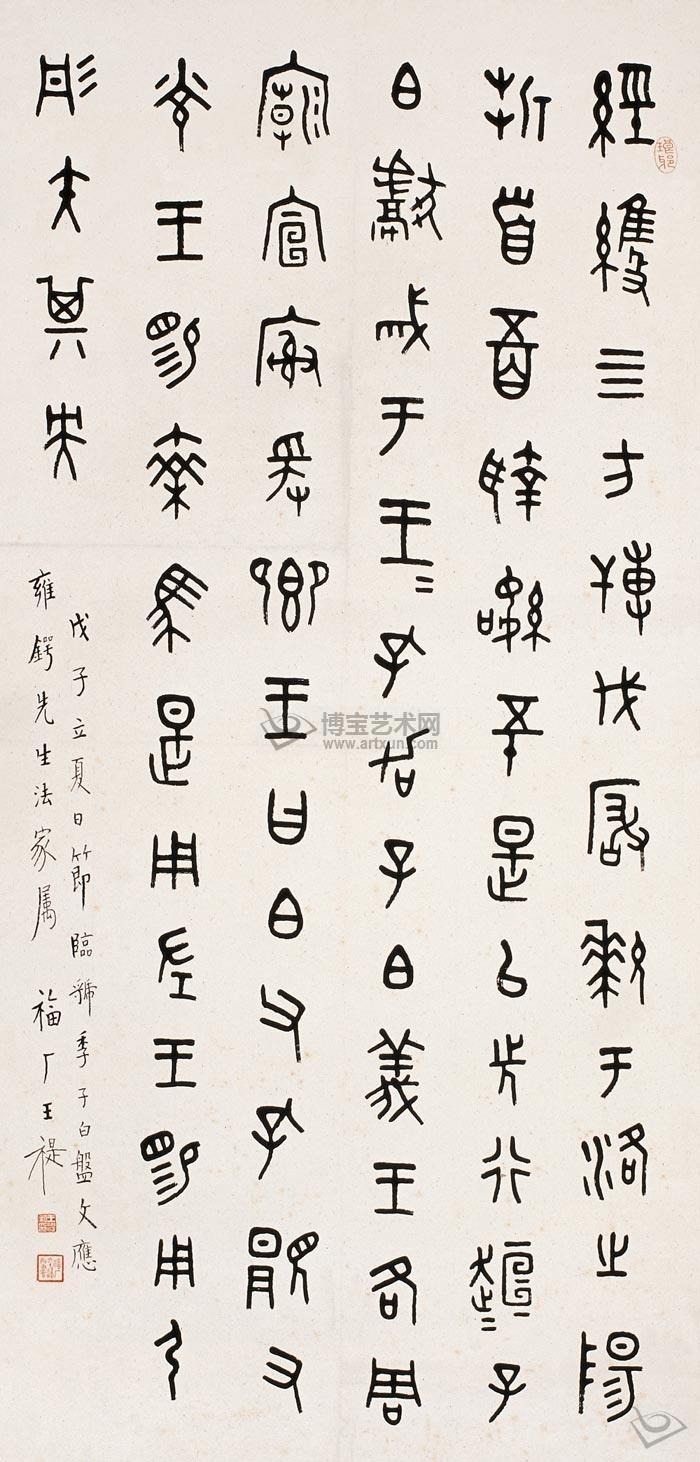 經維四方搏伐厰狁于洛之陽
折首五百執訊五十是以先行桓=子
白獻戒于王=孔加子白義王各周
廟宣廚爰卿王曰白父孔𩁹又
光王賜乘馬是用左王賜用弓
彤矢其央
戊子立夏日節臨虢季子白盤文應
雍鍔先生法家屬 福厂王禔
博宝艺术网
www.artxun.com